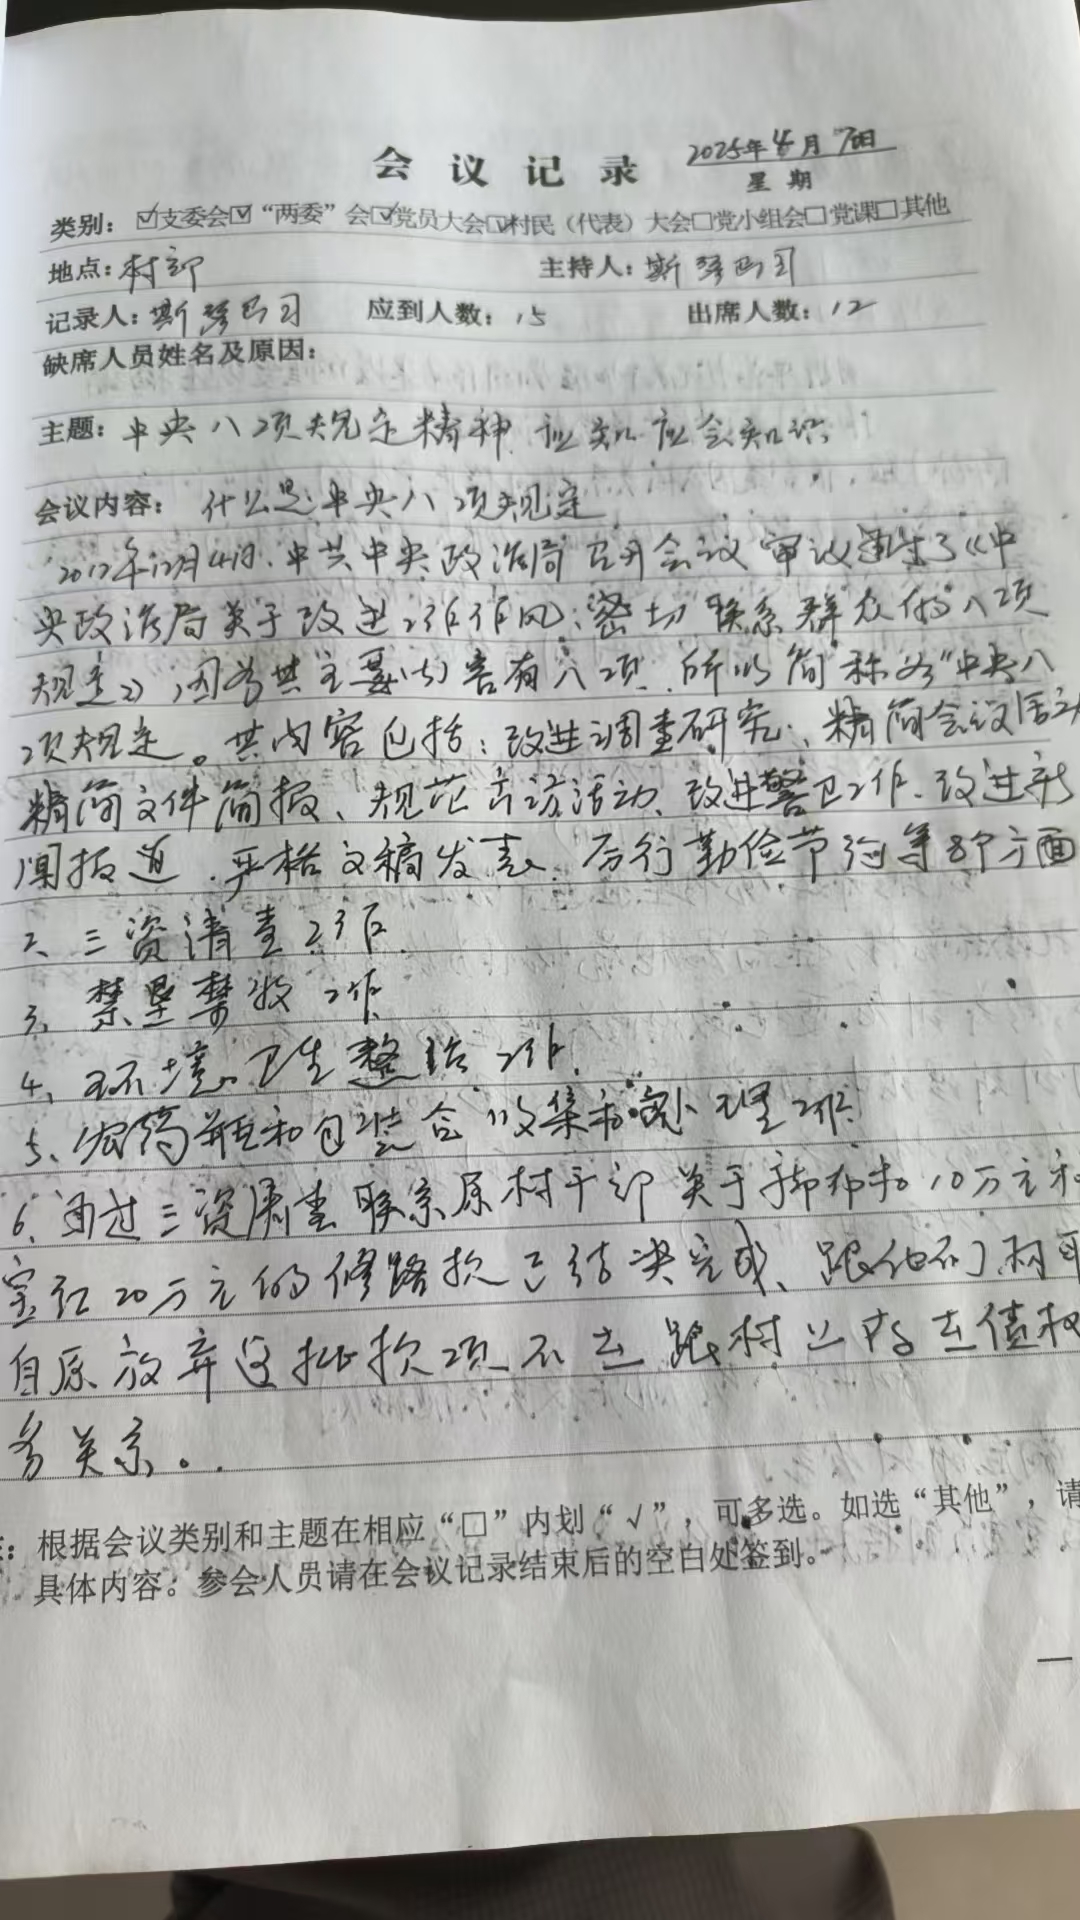 会议记录 2025年4月7日
星期
类别：☑支委会☑“两委”会☑党员大会☑村民（代表）大会□党小组会□党课□其他
地点：村部 主持人：斯琴巴图
记录人：斯琴巴图 应到人数：15 出席人数：12
缺席人员姓名及原因：
主题：中央八项规定精神 应知应会知识
会议内容：什么是中央八项规定
2012年12月4日，中共中央政治局召开会议 审议通过了《中
央政治局关于改进工作作风、密切联系群众的八项
规定》，因为其主要内容有八项，所以简称为“中央八
项规定。其内容包括：改进调查研究、精简会议活动
精简文件简报、规范出访活动、改进警卫工作、改进新
闻报道、严格文稿发表、厉行勤俭节约等8个方面
2、三资清查工作.
3、禁垦禁牧工作
4、环境卫生整治工作.
5、农药瓶和包装 收集和处理工作
6、通过三资清查联系原村干部关于 10万元和
宝红20万元的修路款已结决完成、跟他们
自原放弃这批款项不去跟村 债权
务关系。
根据会议类别和主题在相应“□”内划“√”，可多选。如选“其他”，请
具体内容。参会人员请在会议记录结束后的空白处签到。